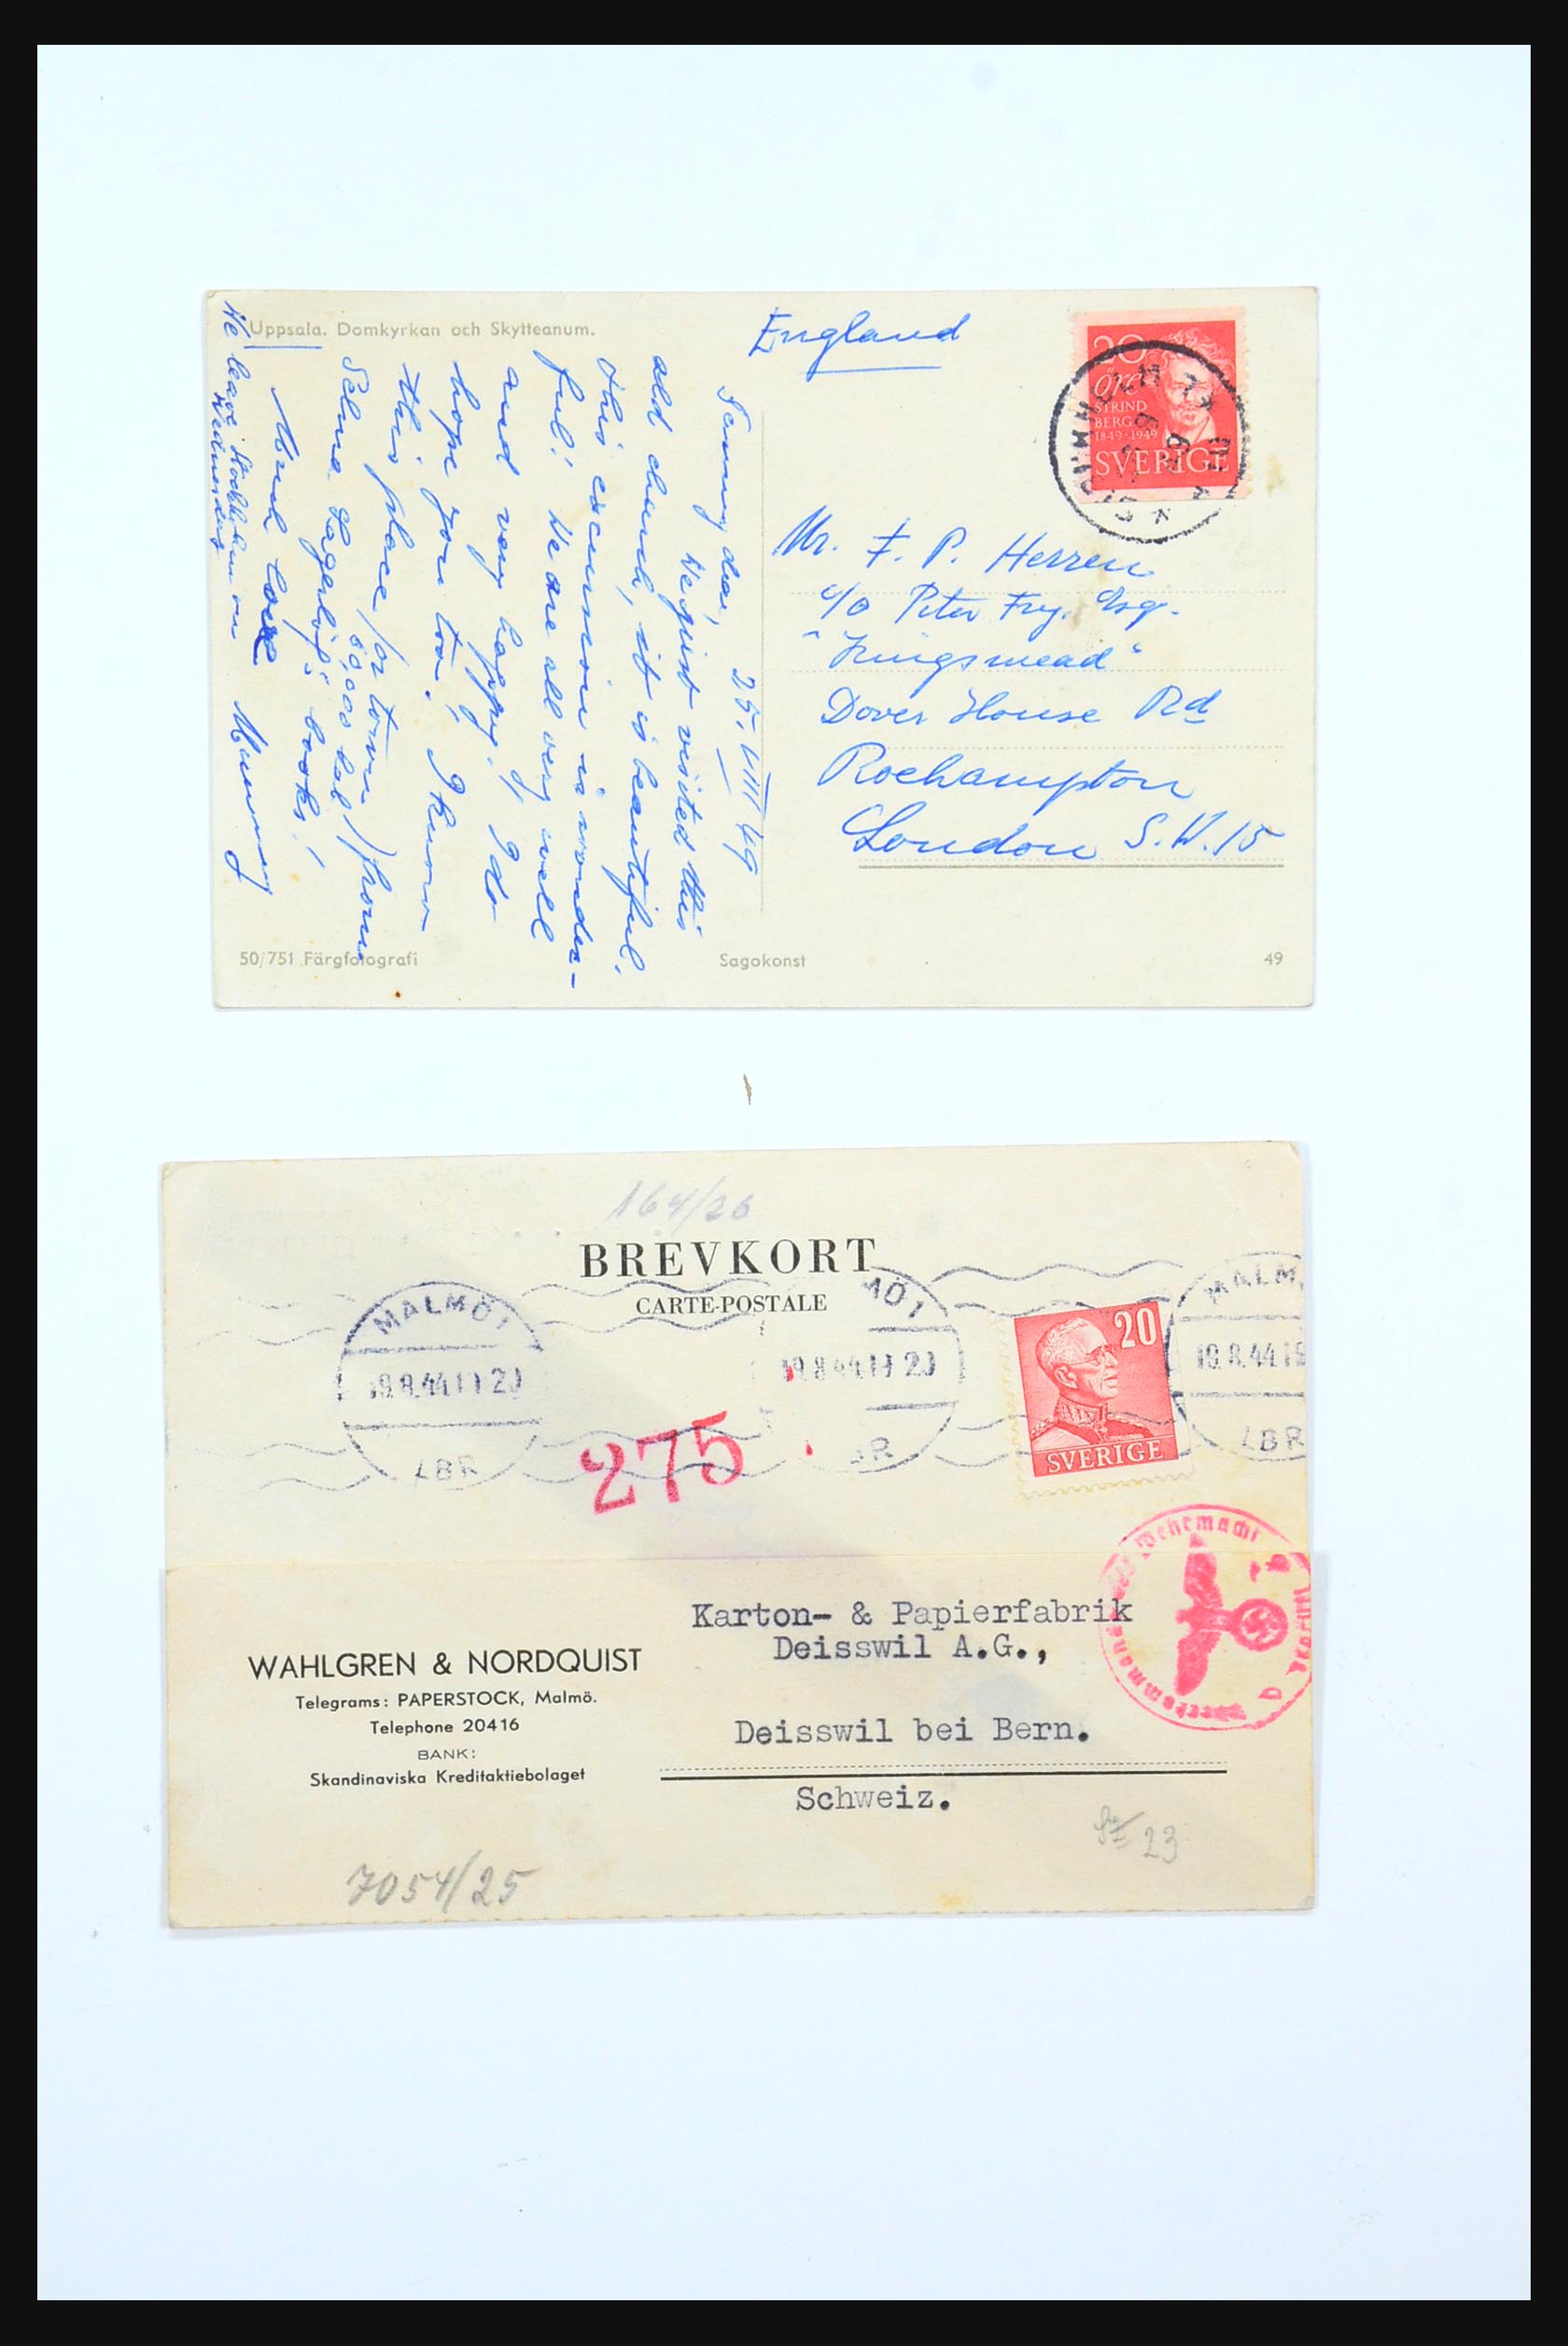 Uppsala. Domkyrkan och Skytteanum.
England
20
öre
STRIND
BERG
1849-1949
SVERIGE
25. VIII 49
dear,
We just visited this
old church, it is beautiful.
This excursion is wonder-
ful! We are all very well
and very happy. I do
hope you too. I know
this place /or town/ from
Selma Lagerlöf's books!
Much love
Mummy
We leave Stockholm on
Wednesday
Mr. F. P. Herren
c/o Peter Fry, Esq.
"Kingsmead"
Dover House Rd
Roehampton
London S.W.15
50/751 Färgfotografi
Sagokonst
49
164/26
BREVKORT
CARTE-POSTALE
MALMÖ 1
19.8.44
LBR
MÖ 1
19.8.44
BR
MALM
19.8.44
LBR
20
SVERIGE
275
Wehrmacht
WAHLGREN & NORDQUIST
Telegrams: PAPERSTOCK, Malmö.
Telephone 20416
BANK:
Skandinaviska Kreditaktiebolaget
Karton- & Papierfabrik
Deisswil A.G.,
Deisswil bei Bern.
Schweiz.
23
7054/25